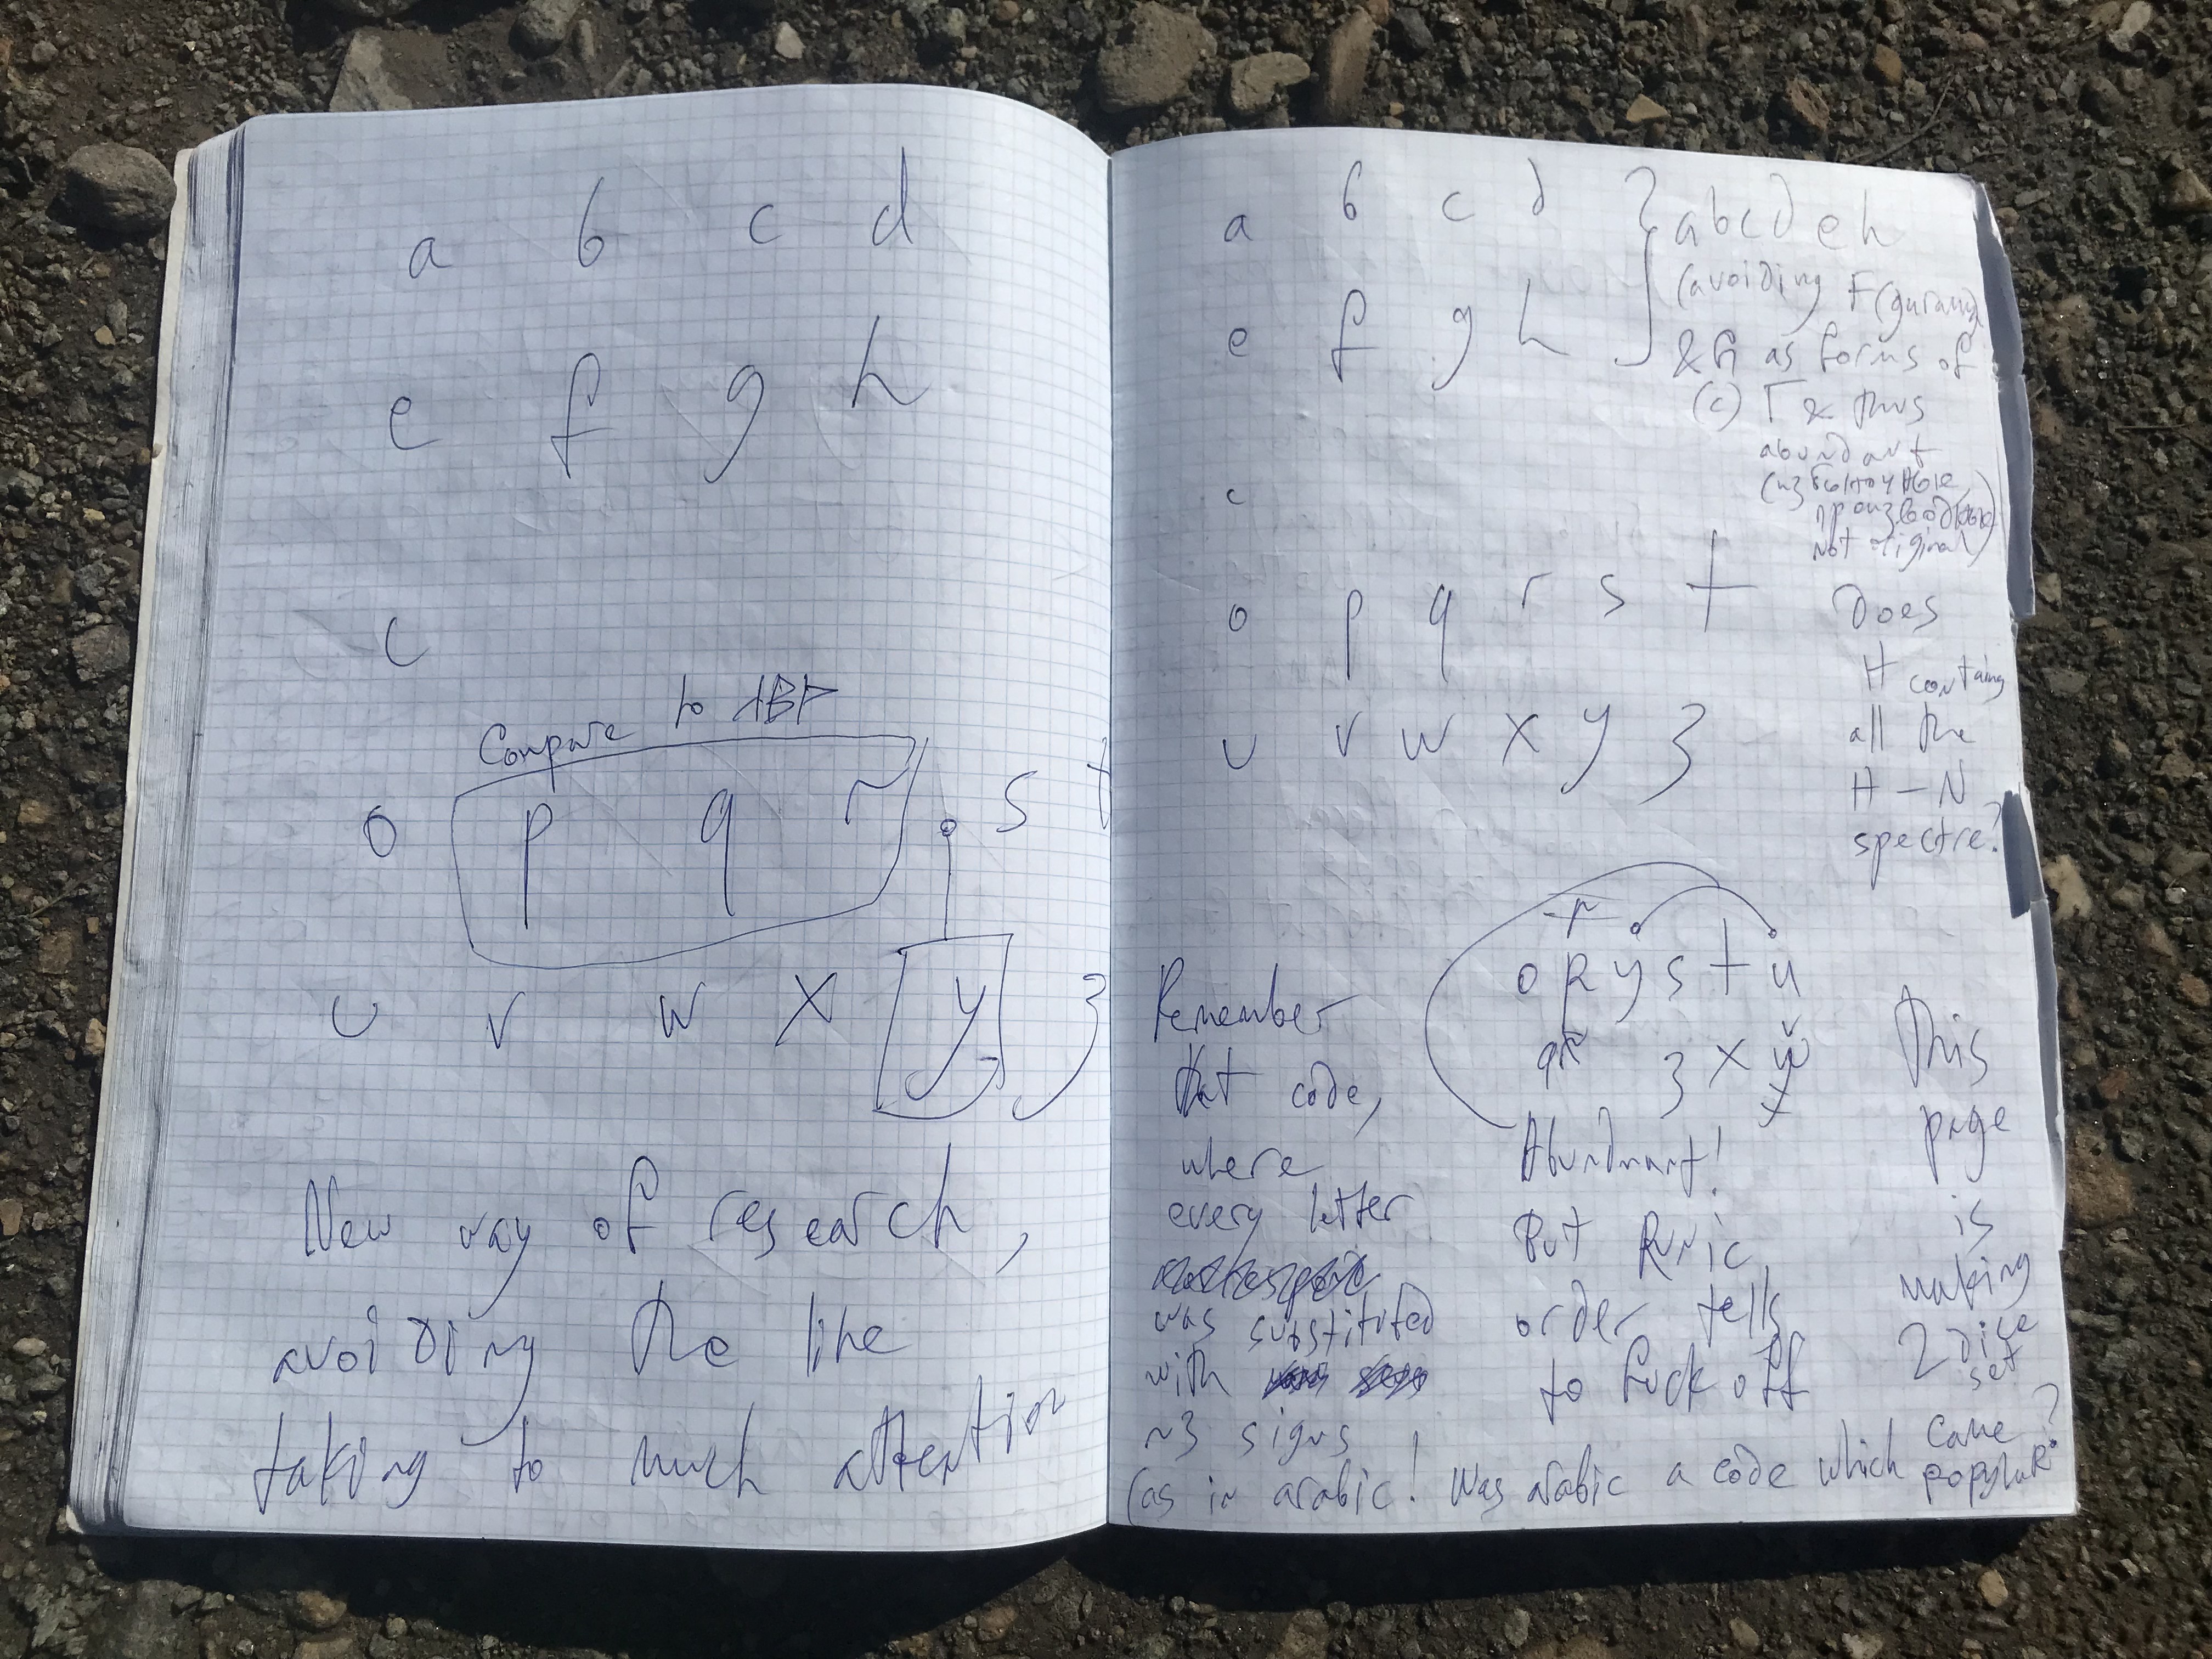 a b c d
e f g h
c
Compare to ABГ
o p q r s t
u v w x y z
New way of research,
avoiding the line
taking to much attention
a b c d
e f g h
abcd eh
(avoiding F
& G as forms of
(c) Г & thus
abundant
not original)
c
o p q r s t
u v w x y z
Does
H containg
all the
H – N
spectre?
Remember
that code,
where
every letter
was substituted
with
~3 signs
(as in arabic! Was arabic a code which came popular?
o p y s t u
q r z x w
Abundant!
But Runic
order tells
to fuck off
This
page
is
making
2 dice
set